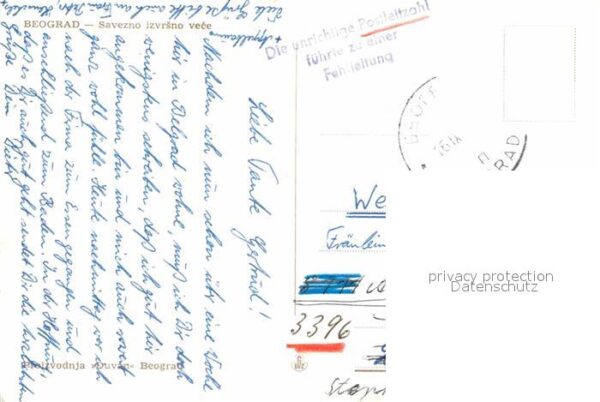 BEOGRAD — Savezno izvršno veće
Liebe Tante Gertrud!
Nachdem ich nun schon über eine Woche
hier in Belgrad wohne, muß ich Dir doch
wenigstens schreiben, daß ich gut hier
angekommen bin und mich auch soweit
ganz wohl fühle. Heute nachmittag war ich
nach der Firma zum Essen gegangen und
anschließend zum Baden. In der Hoffnung,
daß es Dir auch gut geht sendet Dir die herzlichsten
Grüße Dein
Viele Grüße bitte auch an
Proizvodnja »Duvan« Beograd
Die unrichtige Postleitzahl
führte zu einer
Fehlleitung
We
Fräulein
3396
privacy protection
Datenschutz